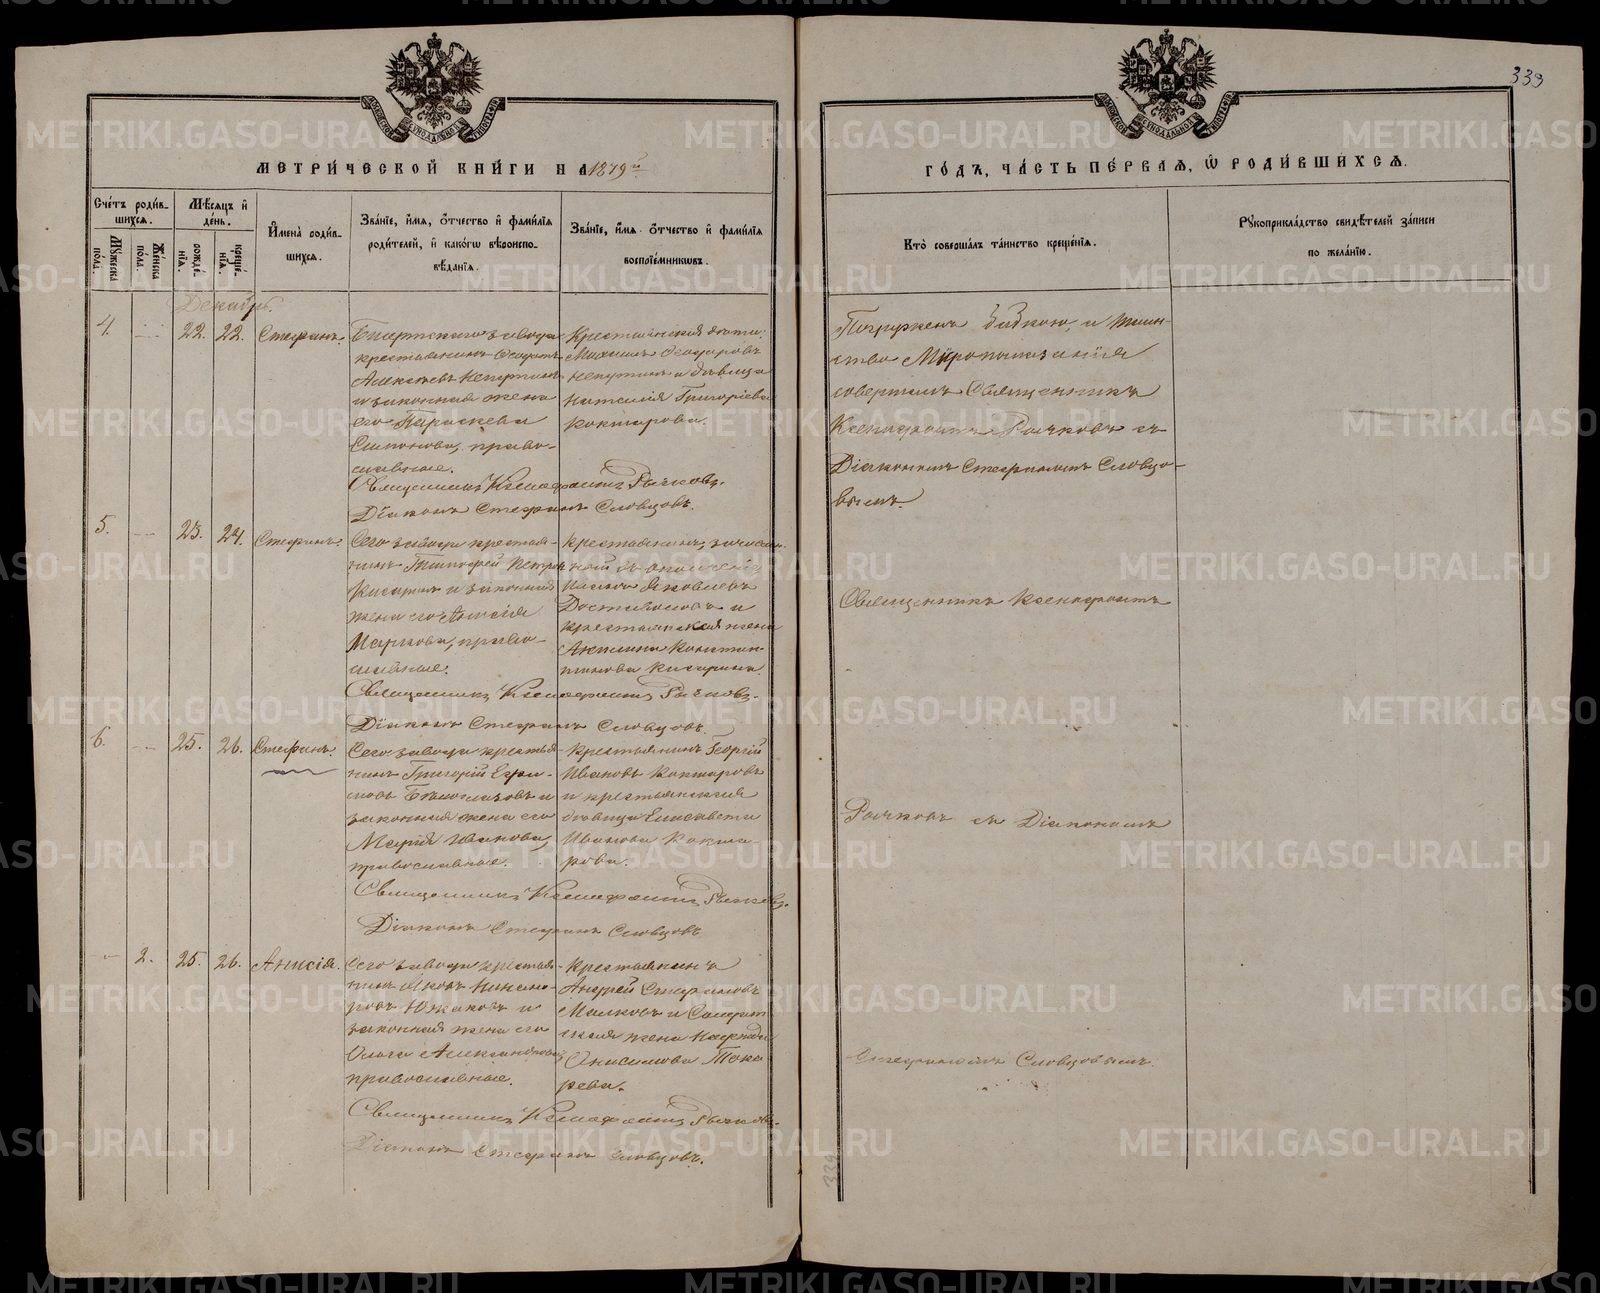 339
МЕТРИ́ЧЕСКОЙ КНИ́ГИ НА 1879й
ГО́ДЪ, ЧА́СТЬ ПЕ́РВАЯ, Ѡ РОДИ́ВШИХСЯ.
Сче́тъ роди́в-
шихся.
Му́жеска по́ла.
Же́нска по́ла.
Мѣ́сяцъ и де́нь.
рожде́-
нія.
креще́-
нія.
Имена̀ роди́в-
шихся.
Зва́ніе, и́мя, о́тчество и фами́лія
роди́телей, и како́гѡ вѣроиспо-
вѣ́данія.
Зва́ніе, и́мя о́тчество и фами́лія
воспріе́мниковъ.
Кто̀ соверша́лъ та́инство креще́нія.
Рукоприкла́дство свидѣ́телей за́писи
по жела́нію.
Декабрь.
4. 22. 22. Стефанъ.
завода
крестьянинъ
Алексѣевъ
и законная жена
его Параскева
право-
славные.
Священникъ Ксенофонтъ Рычковъ.
Діаконъ Стефанъ Словцовъ.
Михаилъ Ѳеодоровъ
и дѣвица
Наталія Григоріева
Кокшарова.
Погруженъ бабкою, и таин-
ство Мѵропомазанія
совершалъ Священникъ
Ксенофонтъ Рычковъ съ
Діакономъ Стефаномъ Словцо-
вымъ.
5. 23. 24. Стефанъ.
Сего завода крестья-
нинъ Тимофей
и законная
жена его Анисія
Маркова, право-
славные.
Священникъ Ксенофонтъ Рычковъ.
Діаконъ Стефанъ Словцовъ.
Крестьянинъ,
Яковлевъ
и
крестьянская жена
Акилина Констан-
тинова
Священникъ Ксенофонтъ
6. 25. 26. Стефанъ.
Сего завода крестья-
нинъ Григорій Ефи-
мовъ Бѣлоглазовъ и
законная жена его
Марія Иванова,
православные.
Священникъ Ксенофонтъ Рычковъ.
Діаконъ Стефанъ Словцовъ
Крестьянинъ Георгій
Ивановъ Кокшаровъ
и крестьянская
дѣвица Елисавета
Иванова Кокша-
рова.
Рычковъ съ Діакономъ
2. 25. 26. Анисія.
Сего завода крестья-
нинъ Яковъ Никано-
ровъ Южаковъ и
законная жена его
Ольга Александрова
православные.
Священникъ Ксенофонтъ Рычковъ.
Діаконъ Стефанъ Словцовъ.
Крестьянинъ
Андрей Стефановъ
Малковъ и Солдат-
ская жена
Анисимова Тока-
рева.
Стефаномъ Словцовымъ.
339
METRIKI.GASO-URAL.RU